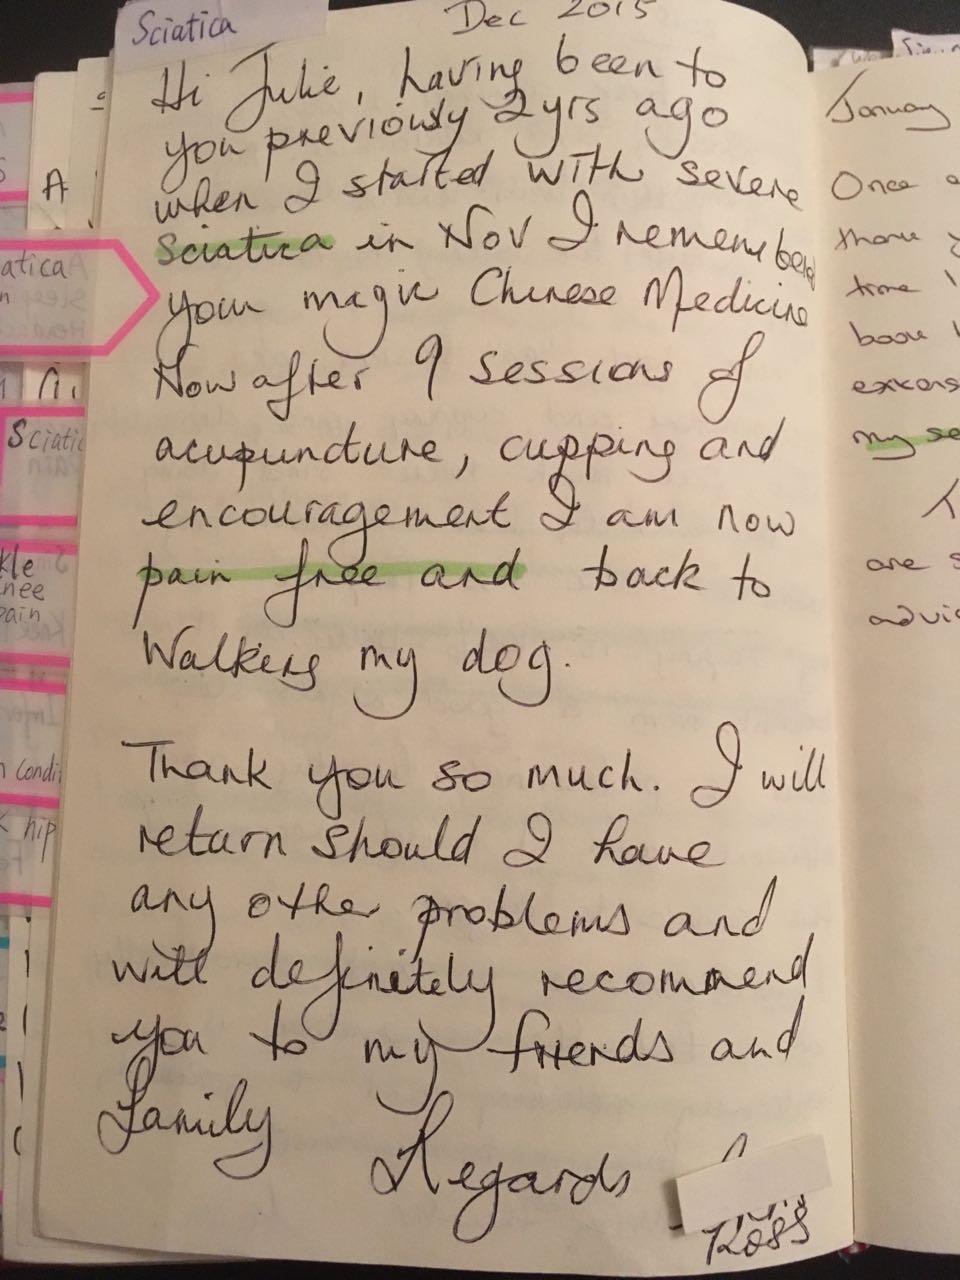 Sciatica
Dec 2015
Hi Julie, having been to
you previously 2 yrs ago
when I started with severe
Sciatica in Nov I remembered
your magic Chinese Medicine
Now after 9 sessions of
acupuncture, cupping and
encouragement I am now
pain free and back to
Walking my dog.
Thank you so much. I will
return should I have
any other problems and
will definitely recommend
you to my friends and
family
Regards
Ross
A
atica
n
Sciatic
kle
nee
pain
condi
hip
January
Once
thank y
time
book
excers
my se
are s
advic